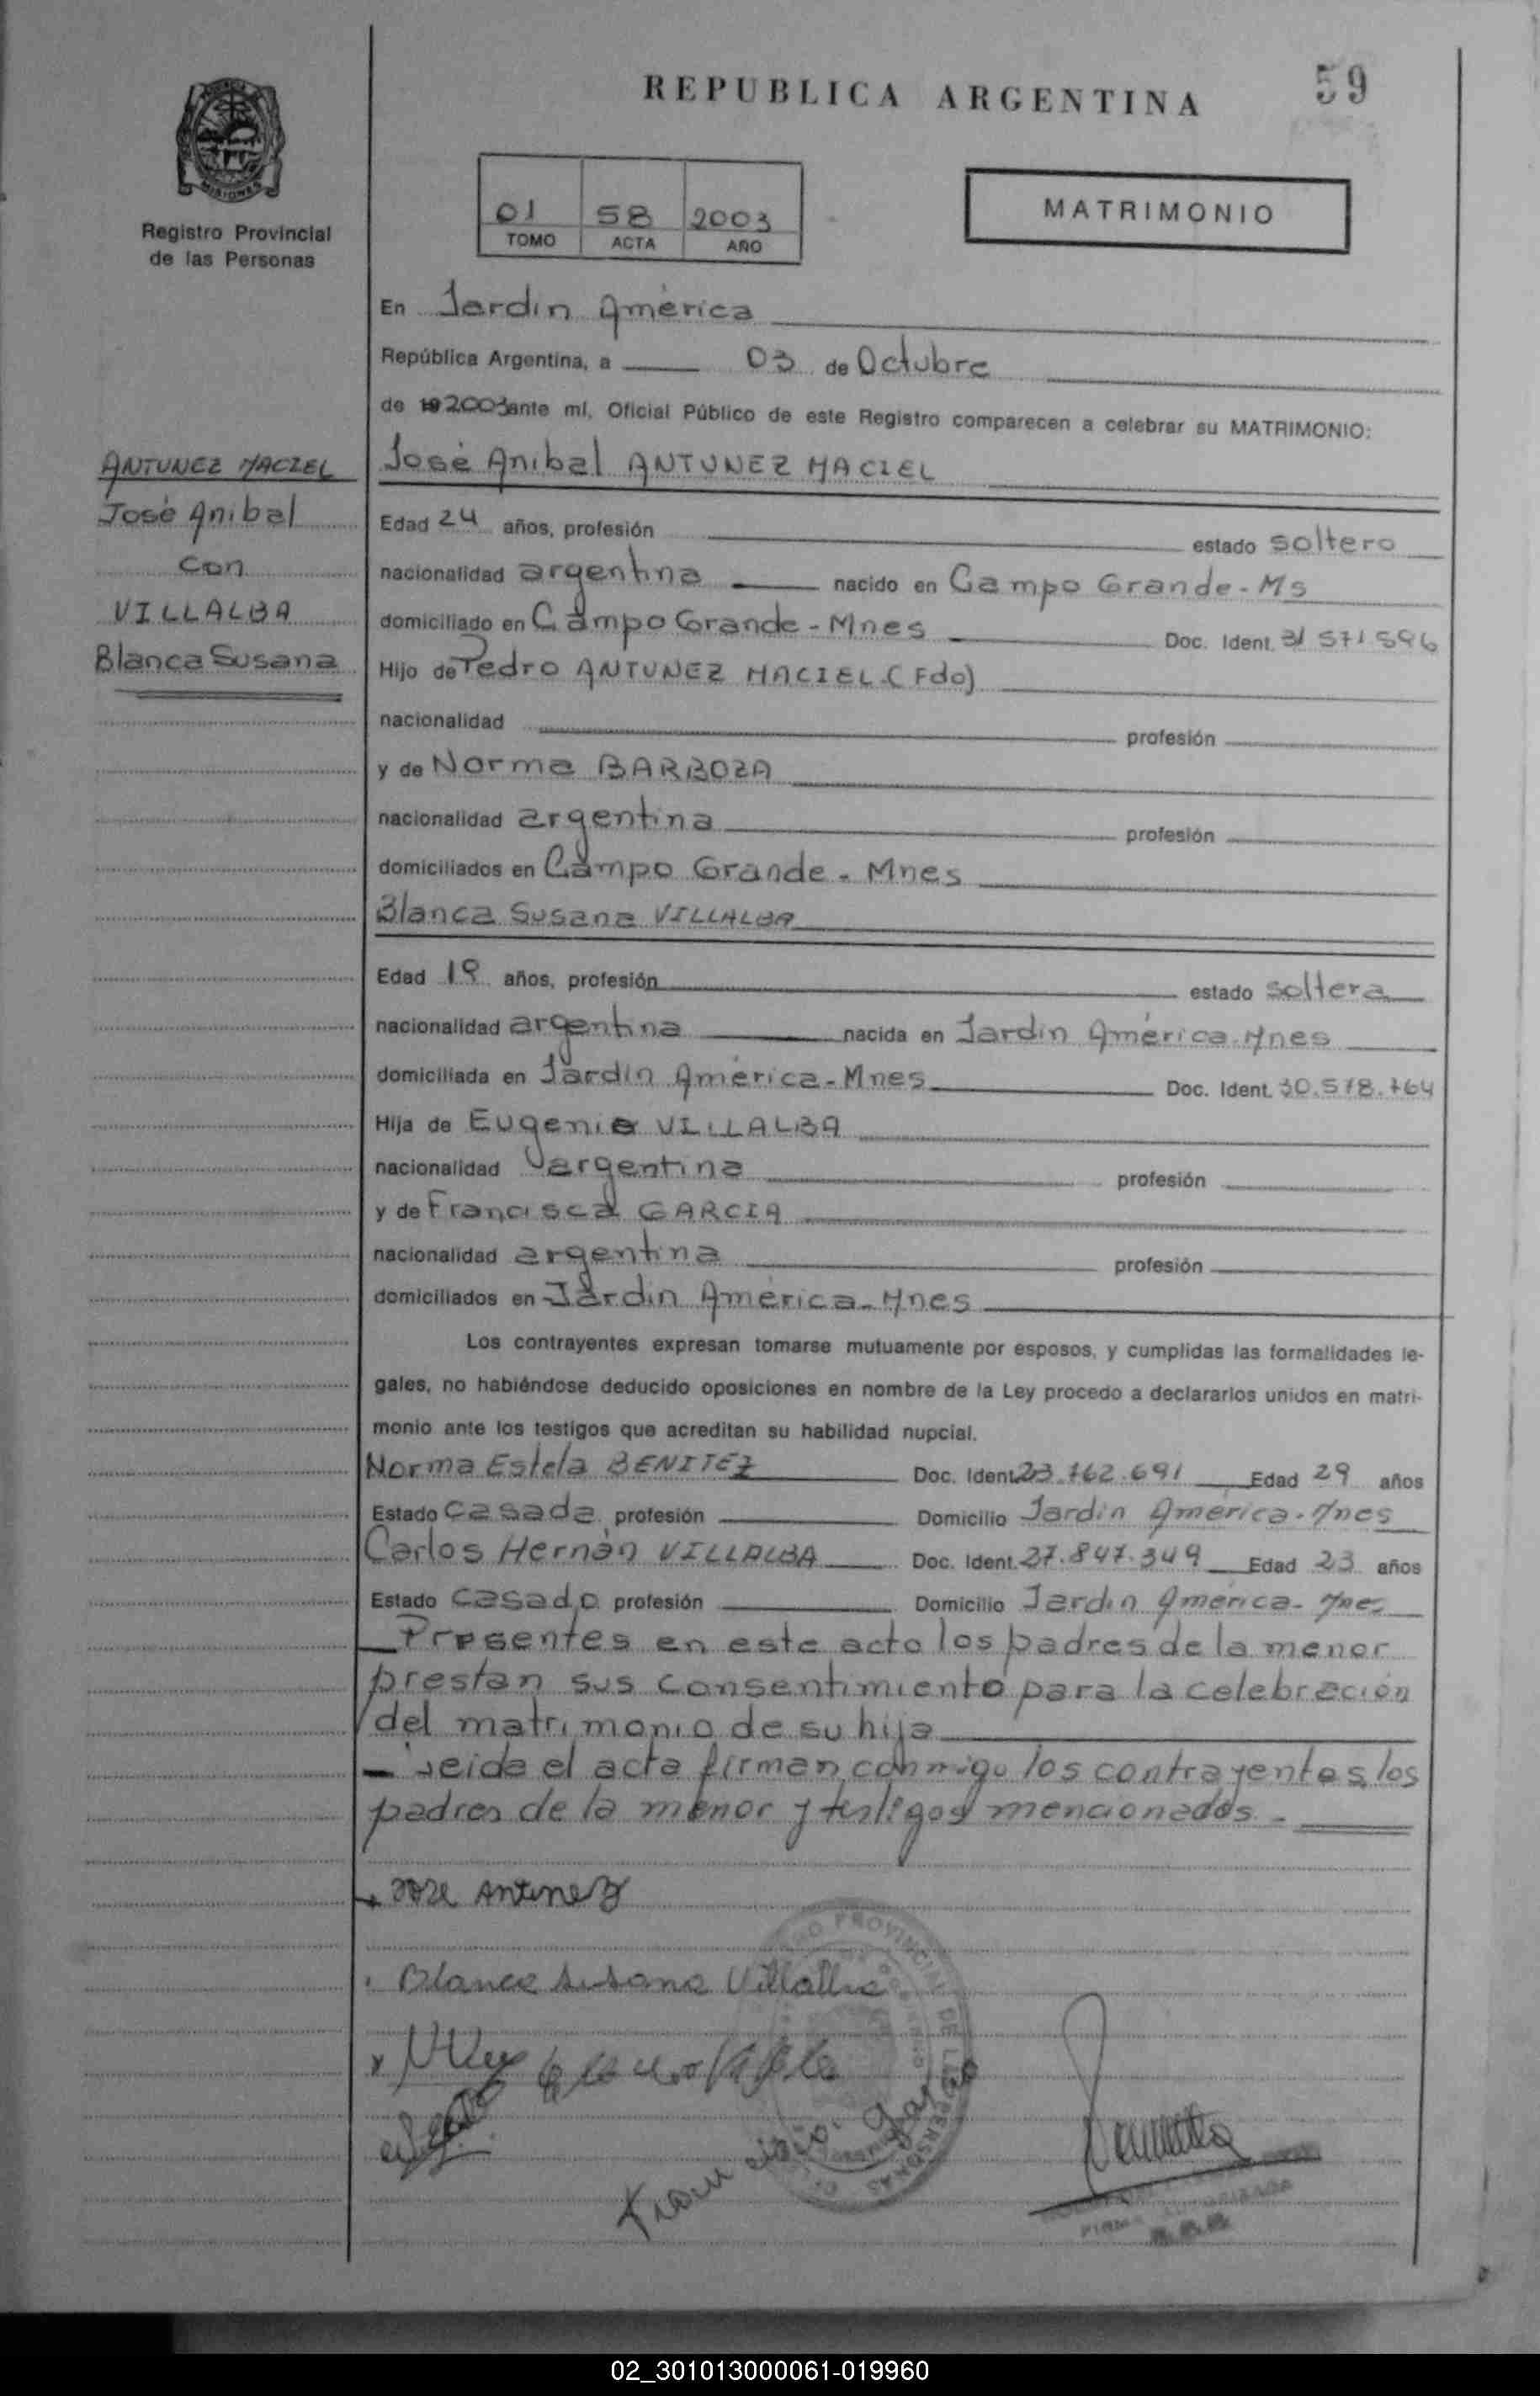 REPUBLICA ARGENTINA
59
MISIONES
Registro Provincial
de las Personas
01 58 2003
TOMO ACTA AÑO
MATRIMONIO
En Jardín América
República Argentina, a 03 de Octubre
de 19 2003 ante mí, Oficial Público de este Registro comparecen a celebrar su MATRIMONIO:
ANTUNEZ MACIEL
José Anibal
con
VILLALBA
Blanca Susana
José Anibal ANTUNEZ MACIEL
Edad 24 años, profesión estado soltero
nacionalidad argentina nacido en Campo Grande - Ms
domiciliado en Campo Grande - Mnes Doc. Ident. 31 571 596
Hijo de Pedro ANTUNEZ MACIEL (Fdo)
nacionalidad profesión
y de Norma BARBOZA
nacionalidad argentina profesión
domiciliados en Campo Grande - Mnes
Blanca Susana VILLALBA
Edad 19 años, profesión estado soltera
nacionalidad argentina nacida en Jardín América. Mnes
domiciliada en Jardín América - Mnes Doc. Ident. 30.578.764
Hija de Eugenio VILLALBA
nacionalidad argentina profesión
y de Francisca GARCIA
nacionalidad argentina profesión
domiciliados en Jardín América - Mnes
Los contrayentes expresan tomarse mutuamente por esposos, y cumplidas las formalidades le-
gales, no habiéndose deducido oposiciones en nombre de la Ley procedo a declararlos unidos en matri-
monio ante los testigos que acreditan su habilidad nupcial.
Norma Estela BENITEZ Doc. Ident. 23.762.691 Edad 29 años
Estado casada profesión Domicilio Jardín América - Mnes
Carlos Hernán VILLALBA Doc. Ident. 27.847.349 Edad 23 años
Estado casado profesión Domicilio Jardín América - Mnes
Presentes en este acto los padres de la menor
prestan sus consentimiento para la celebración
del matrimonio de su hija
Leida el acta firman conmigo los contrayentes, los
padres de la menor y testigos mencionados.
Jose Antunez
Blanca Susana Villalba
REGISTRO PROVINCIAL DE LAS PERSONAS
FIRMA AUTORIZADA
02_301013000061-019960